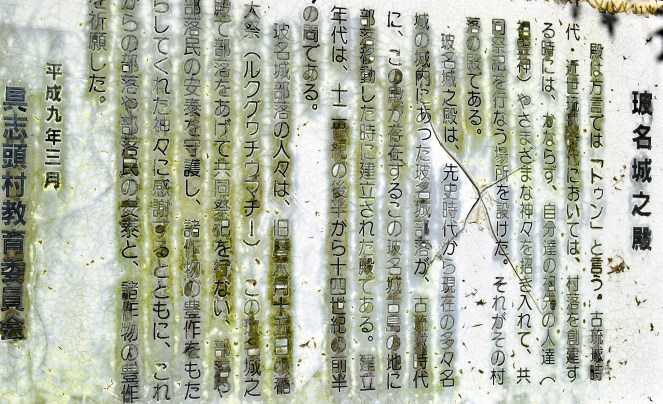 玻名城之殿
殿は方言では「トゥン」と言う。古琉球時
代・近世琉球時代においては、村落を創建す
る時には、かならず、自分達の祖先の人達（
祖霊神）やさまざまな神々を招き入れて、共
同祭祀を行なう場所を設けた。それがその村
落の殿である。
玻名城之殿は、先史時代から現在の多々名
城の城内にあった玻名城部落が、古琉球時代
に、この殿が存在するこの玻名城古島の地に
部落移動した時に建立された殿である。建立
年代は、十二世紀の後半から十四世紀の前半
の間である。
玻名城部落の人々は、旧暦六月十五日の稲
大祭（ルクグヮチウマチー）、この玻名城之
殿で部落をあげて共同祭祀を行ない、部落や
部落民の安泰を守護し、諸作物の豊作をもた
らしてくれた神々に感謝するとともに、これ
からの部落や部落民の安泰と、諸作物の豊作
を祈願した。
平成九年三月
具志頭村教育委員会